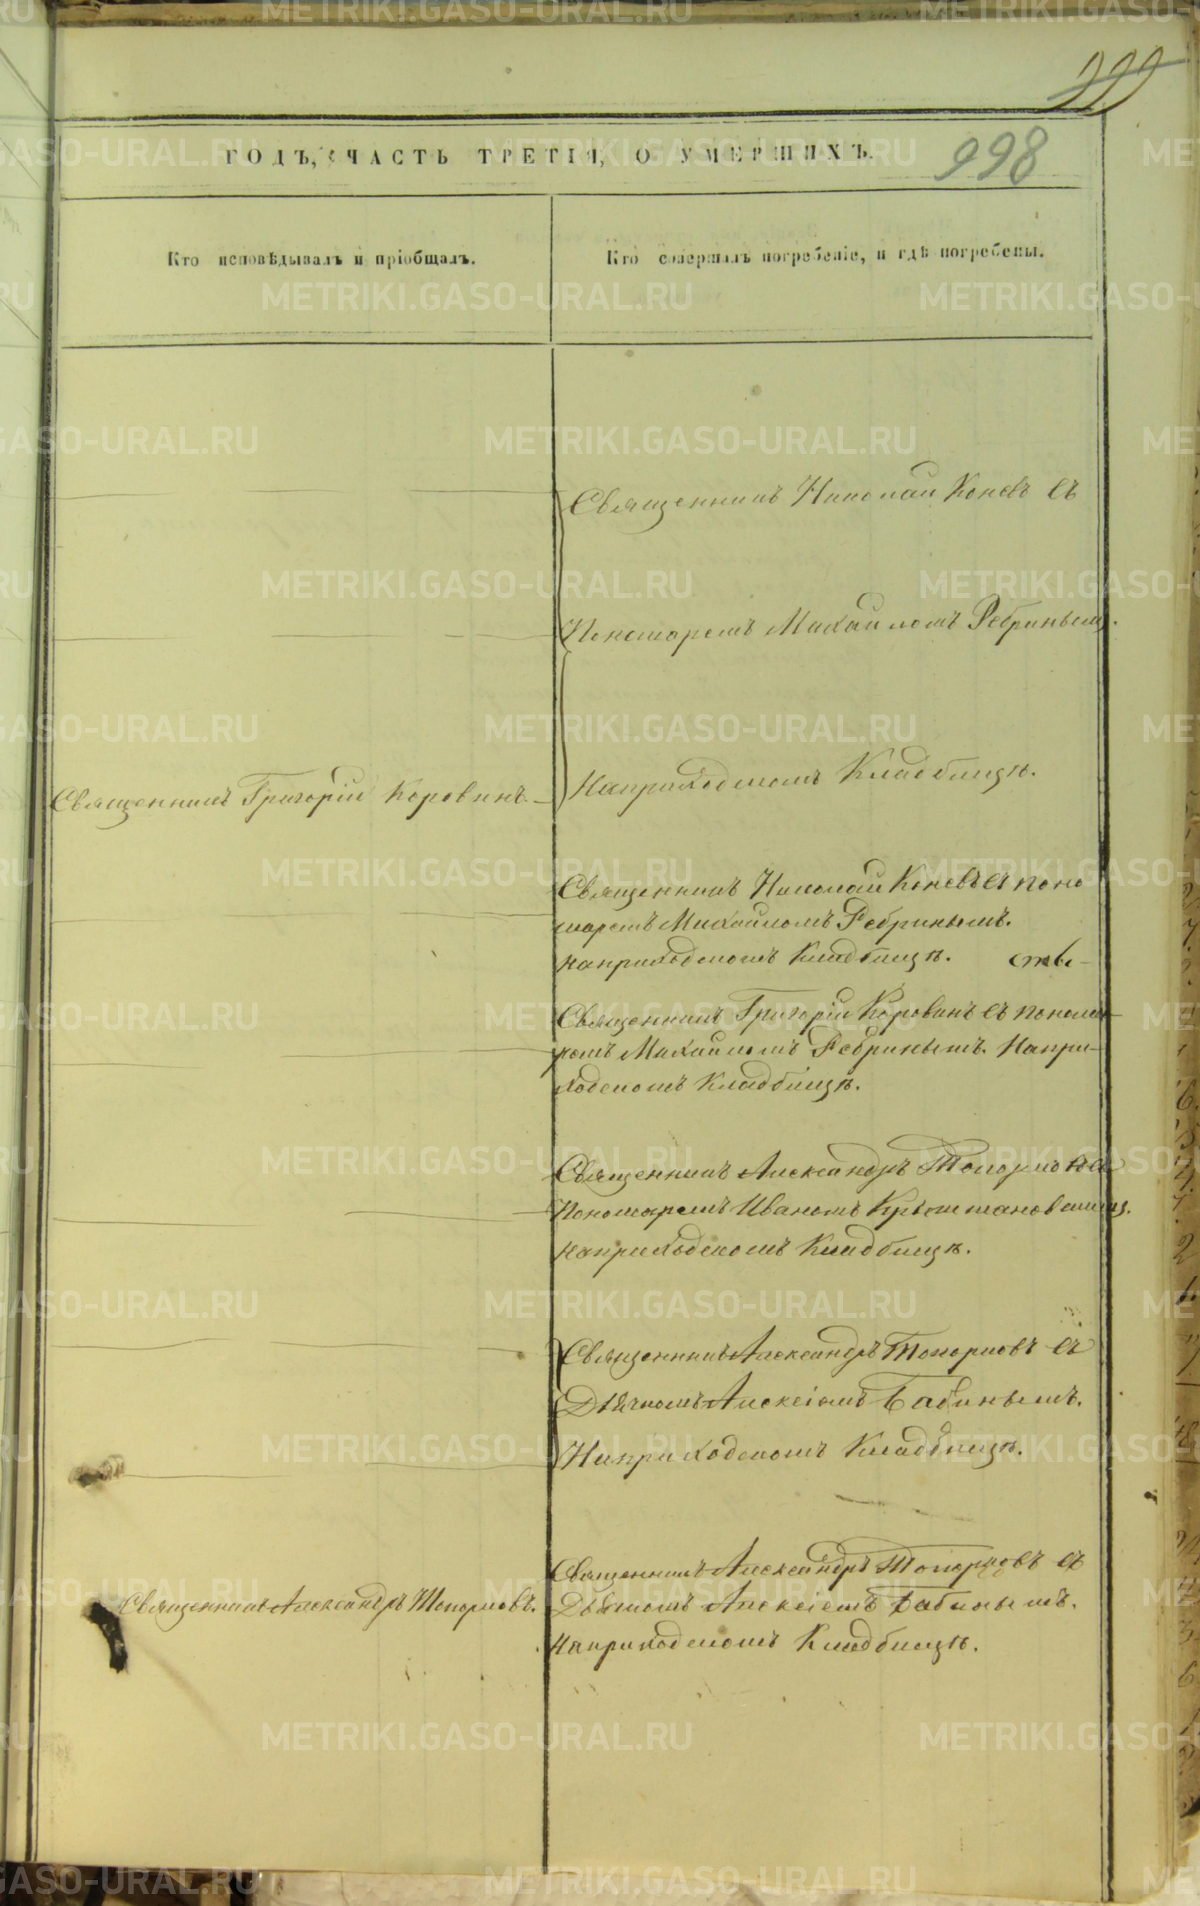 998
ГОДЪ, ЧАСТЬ ТРЕТІЯ, О УМЕРШИХЪ.
Кто исповѣдывалъ и пріобщалъ.
Кто совершалъ погребеніе, и гдѣ погребены.
Священникъ Николай Коневъ съ
Пономаремъ Михаиломъ Ребринымъ.
Священникъ Григорій Коровинъ.
На приходскомъ Кладбищѣ.
Священникъ Николай Коневъ съ поно
маремъ Михаиломъ Ребринымъ.
на приходскомъ Кладбищѣ.
Священникъ Григорій Коровинъ съ понома
ремъ Михаиломъ Ребринымъ. На при-
ходскомъ Кладбищѣ.
Священникъ Александръ Топорковъ съ
Пономаремъ Иваномъ
на приходскомъ Кладбищѣ.
Священникъ Александръ Топорковъ съ
Дьячкомъ Алексіемъ Бабинымъ.
На приходскомъ Кладбищѣ.
Священникъ Александръ Топорковъ съ
Священникъ Александръ Топорковъ.
Дьячкомъ Алексіемъ Бабинымъ.
На приходскомъ Кладбищѣ.
METRIKI.GASO-URAL.RU